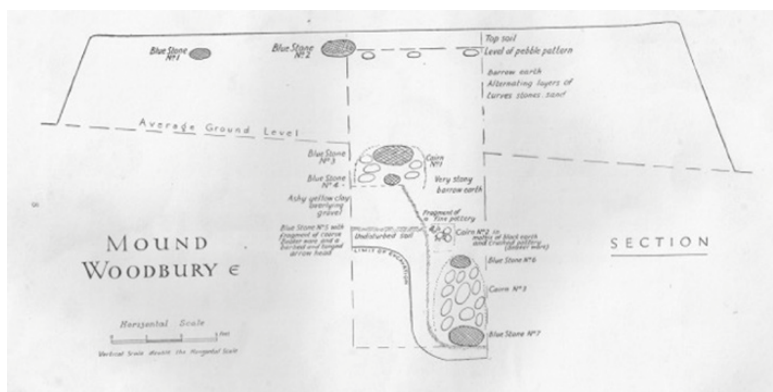 Top soil
Level of pebble pattern
Blue Stone
Nº1
Blue Stone
Nº2
Barrow earth
Alternating layers of
turves stones sand
Average Ground Level
Blue Stone
Nº3
Cairn
Nº1
Blue Stone
Nº4
Very stony
barrow earth
Ashy yellow clay
overlying
gravel
Fragment of
fine pottery
Blue Stone Nº5 with
fragment of coarse
beaker ware and a
barbed and tanged
arrow head
Undisturbed soil
Cairn Nº2 in
matrix of black earth
and crushed pottery
(beaker ware)
LIMIT OF EXCAVATION
MOUND
WOODBURY
SECTION
Blue Stone Nº6
Cairn Nº3
Blue Stone Nº7
Horizontal Scale
feet
Vertical Scale double the Horizontal Scale